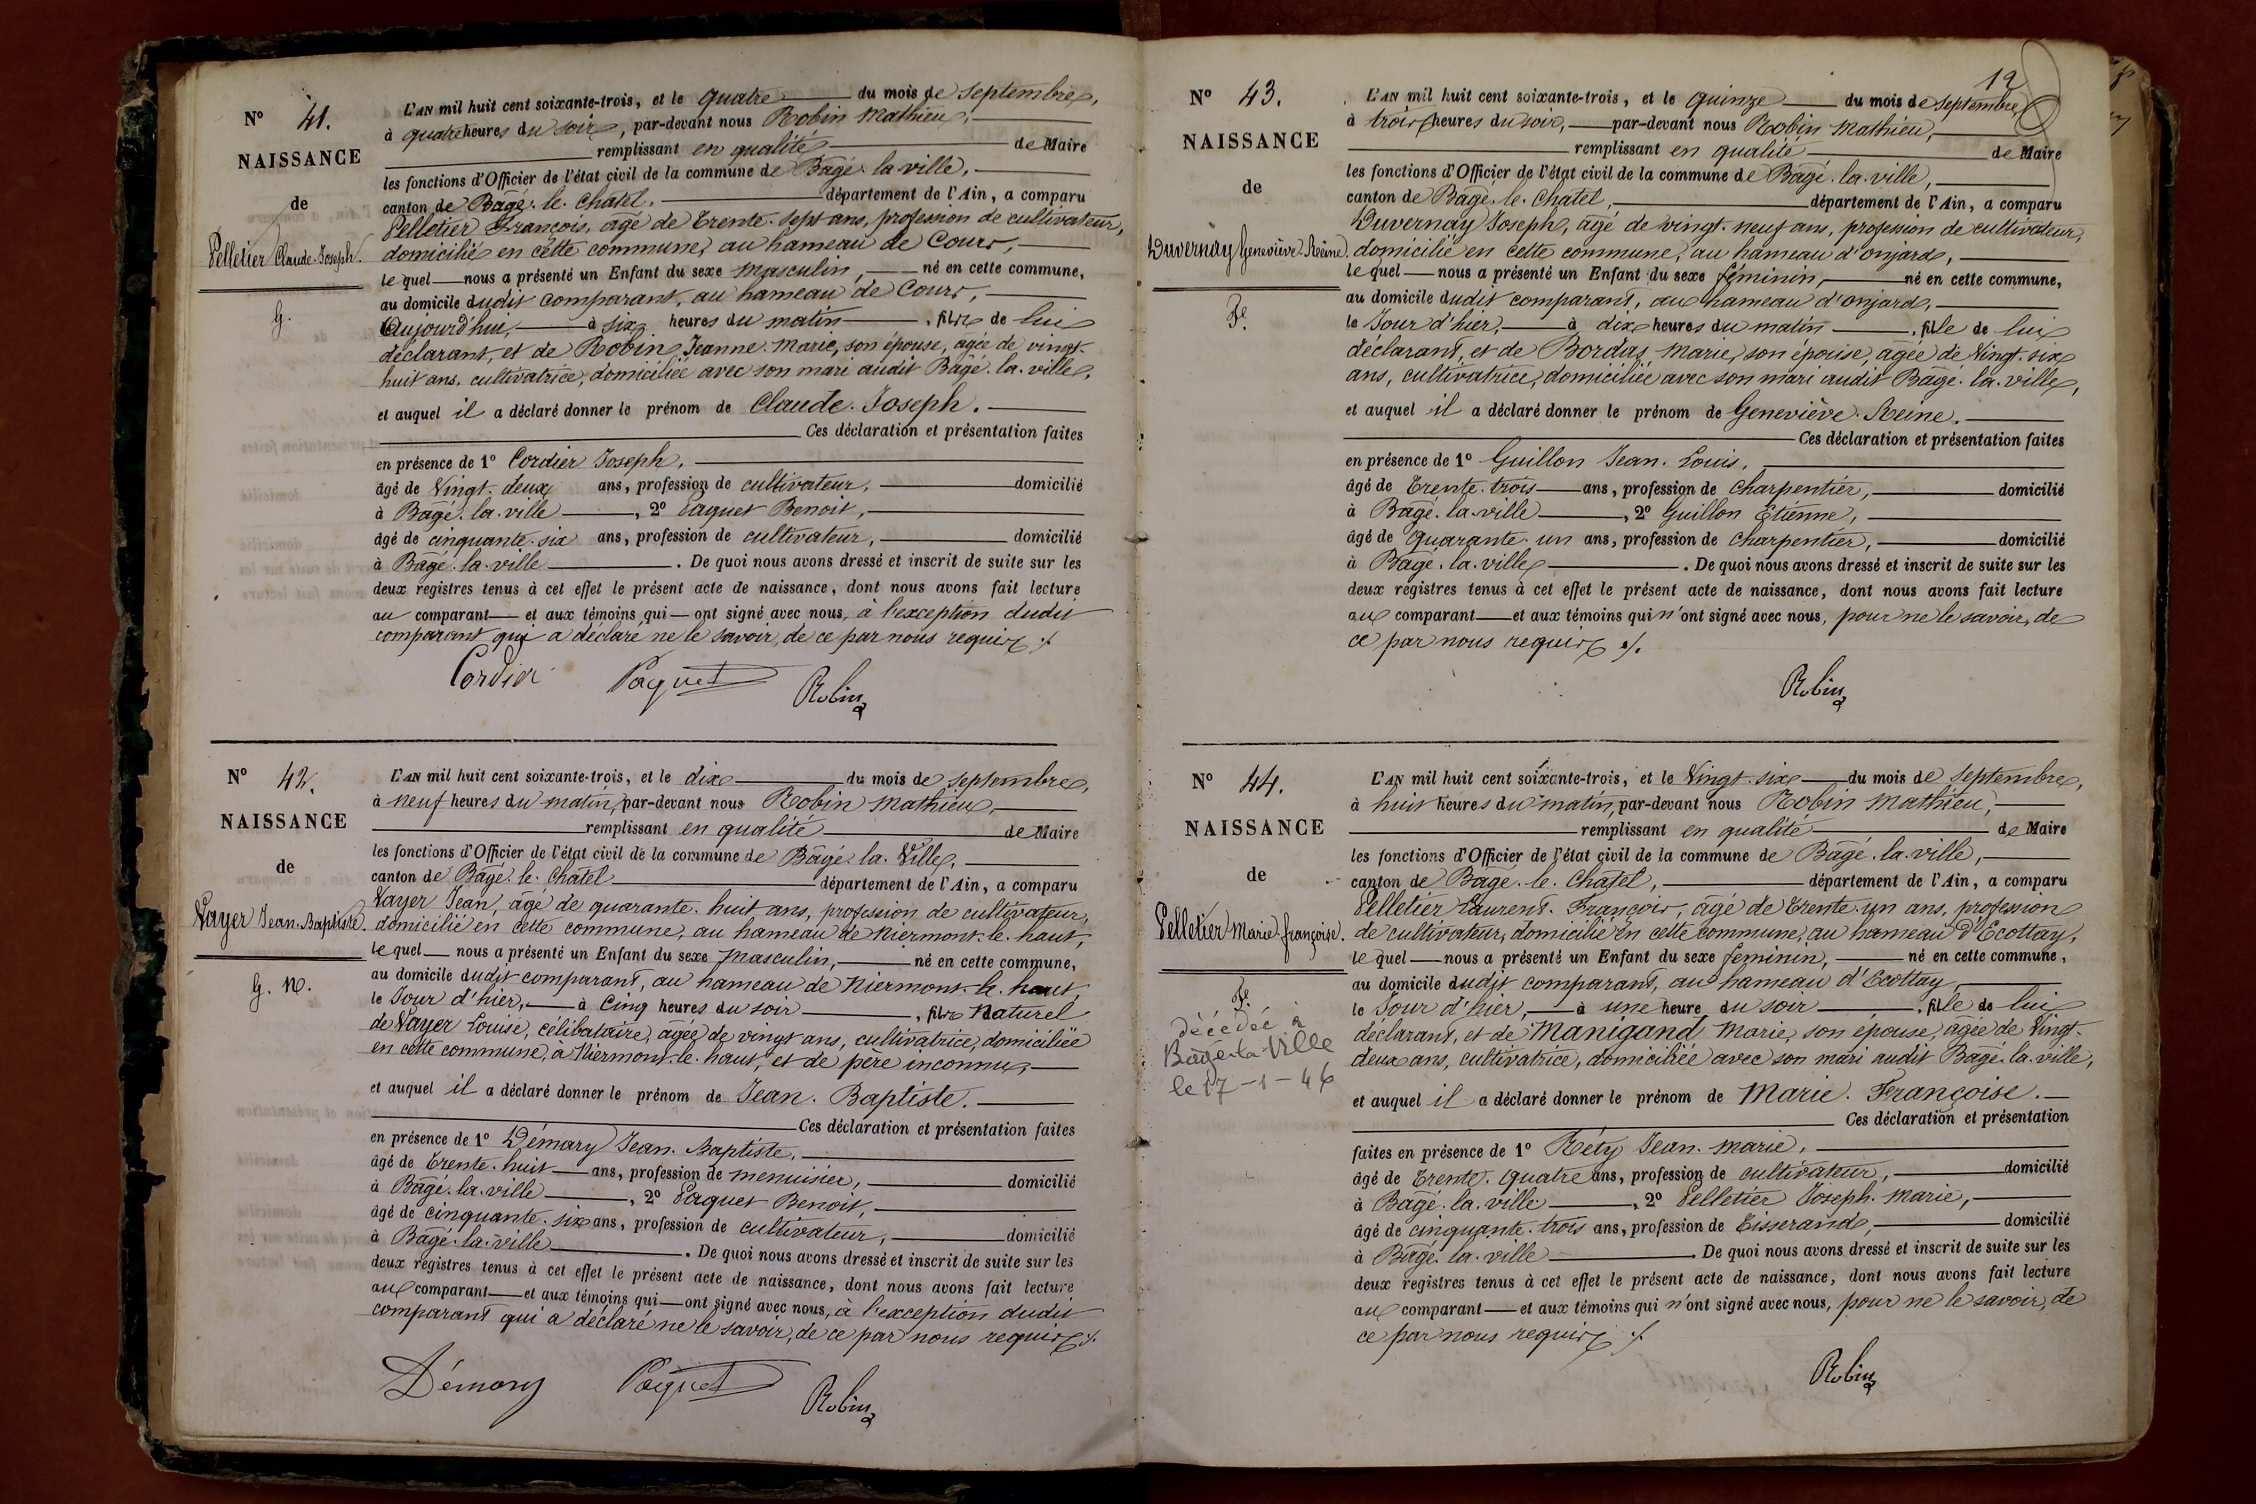 N° 41.
NAISSANCE
de
Pelletier Claude-Joseph.
G.
L'AN mil huit cent soixante-trois, et le quatre du mois de septembre,
à quatre heures du soir, par-devant nous Robin Mathieu,
remplissant en qualité de Maire
les fonctions d'Officier de l'état civil de la commune de Bâgé-la-ville,
canton de Bâgé-le-Chatel, département de l'Ain, a comparu
Pelletier François, âgé de trente-sept ans, profession de cultivateur,
domicilié en cette commune, au hameau de Cours,
le quel nous a présenté un Enfant du sexe masculin, né en cette commune,
au domicile dudit comparant, au hameau de Cours,
Aujourd'hui, à six heures du matin, fils de lui
déclarant, et de Robin Jeanne-Marie, son épouse, âgée de vingt-
huit ans, cultivatrice, domiciliée avec son mari audit Bâgé-la-ville,
et auquel il a déclaré donner le prénom de Claude-Joseph.
Ces déclaration et présentation faites
en présence de 1° Cordier Joseph,
âgé de Vingt-deux ans, profession de cultivateur, domicilié
à Bagé-la-ville, 2° Paquet Benoit,
âgé de cinquante-six ans, profession de cultivateur, domicilié
à Bâgé-la-ville. De quoi nous avons dressé et inscrit de suite sur les
deux registres tenus à cet effet le présent acte de naissance, dont nous avons fait lecture
au comparant et aux témoins qui ont signé avec nous, à l'exception dudit
comparant qui a déclaré ne le savoir, de ce par nous requis ./.
Cordier Paquet Robin
N° 42.
NAISSANCE
de
Vayer Jean-Baptiste.
G. N.
L'AN mil huit cent soixante-trois, et le dix du mois de septembre,
à neuf heures du matin, par-devant nous Robin Mathieu,
remplissant en qualité de Maire
les fonctions d'Officier de l'état civil de la commune de Bâgé-la-Ville,
canton de Bâgé-le-Chatel département de l'Ain, a comparu
Vayer Jean, âgé de quarante-huit ans, profession de cultivateur,
domicilié en cette commune, au hameau de Niermont-le-haut,
le quel nous a présenté un Enfant du sexe Masculin, né en cette commune,
au domicile dudit comparant, au hameau de Niermont-le-haut,
le Jour d'hier, à cinq heures du soir, fils Naturel
de Vayer Louise, célibataire, âgée de vingt ans, cultivatrice, domiciliée
en cette commune, à Niermont-le-haut, et de père inconnu,
et auquel il a déclaré donner le prénom de Jean-Baptiste.
Ces déclaration et présentation faites
en présence de 1° Démary Jean-Baptiste,
âgé de trente-huit ans, profession de menuisier, domicilié
à Bagé-la-ville, 2° Paquet Benoit,
âgé de cinquante-six ans, profession de cultivateur, domicilié
à Bagé-la-ville. De quoi nous avons dressé et inscrit de suite sur les
deux registres tenus à cet effet le présent acte de naissance, dont nous avons fait lecture
au comparant et aux témoins qui ont signé avec nous, à l'exception dudit
comparant qui a déclaré ne le savoir, de ce par nous requis ./.
Démary Paquet Robin
12
N° 43.
NAISSANCE
de
Duvernay Geneviève-Reine.
Fe.
L'AN mil huit cent soixante-trois, et le quinze du mois de septembre,
à trois heures du soir, par-devant nous Robin Mathieu,
remplissant en qualité de Maire
les fonctions d'Officier de l'état civil de la commune de Bâgé-la-ville,
canton de Bagé-le-Chatel, département de l'Ain, a comparu
Duvernay Joseph, âgé de vingt-neuf ans, profession de cultivateur,
domicilié en cette commune, au hameau d'onjard,
le quel nous a présenté un Enfant du sexe féminin, né en cette commune,
au domicile dudit comparant, au hameau d'onjard,
le Jour d'hier, à dix heures du matin, fille de lui
déclarant, et de Bordas Marie, son épouse, âgée de Vingt-six
ans, cultivatrice, domiciliée avec son mari audit Bâgé-la-ville,
et auquel il a déclaré donner le prénom de Geneviève-Reine.
Ces déclaration et présentation faites
en présence de 1° Guillon Jean-Louis,
âgé de trente-trois ans, profession de charpentier, domicilié
à Bagé-la-ville, 2° Guillon Etienne,
âgé de Quarante-un ans, profession de charpentier, domicilié
à Bagé-la-ville. De quoi nous avons dressé et inscrit de suite sur les
deux registres tenus à cet effet le présent acte de naissance, dont nous avons fait lecture
au comparant et aux témoins qui n'ont signé avec nous, pour ne le savoir, de
ce par nous requis ./.
Robin
N° 44.
NAISSANCE
de
Pelletier Marie-françoise.
Fe.
décédée à
Bâgé-la-Ville
le 17-1-46
L'AN mil huit cent soixante-trois, et le Vingt-six du mois de septembre,
à huit heures du matin, par-devant nous Robin Mathieu,
remplissant en qualité de Maire
les fonctions d'Officier de l'état civil de la commune de Bâgé-la-ville,
canton de Bâgé-le-Chatel, département de l'Ain, a comparu
Pelletier Laurent-François, âgé de trente-un ans, profession
de cultivateur, domicilié en cette commune, au hameau d'Ecottay,
le quel nous a présenté un Enfant du sexe feminin, né en cette commune,
au domicile dudit comparant, au hameau d'Ecottay
le Jour d'hier, à une heure du soir, fille de lui
déclarant, et de Manigand Marie, son épouse, âgée de Vingt-
deux ans, cultivatrice, domiciliée avec son mari audit Bâgé-la-ville,
et auquel il a déclaré donner le prénom de Marie-Françoise.
Ces déclaration et présentation
faites en présence de 1° Réty Jean-Marie,
âgé de trente-quatre ans, profession de cultivateur, domicilié
à Bâgé-la-ville, 2° Pelletier Joseph-Marie,
âgé de cinquante-trois ans, profession de tisserand, domicilié
à Bâgé-la-ville. De quoi nous avons dressé et inscrit de suite sur les
deux registres tenus à cet effet le présent acte de naissance, dont nous avons fait lecture
au comparant et aux témoins qui n'ont signé avec nous, pour ne le savoir, de
ce par nous requis ./.
Robin